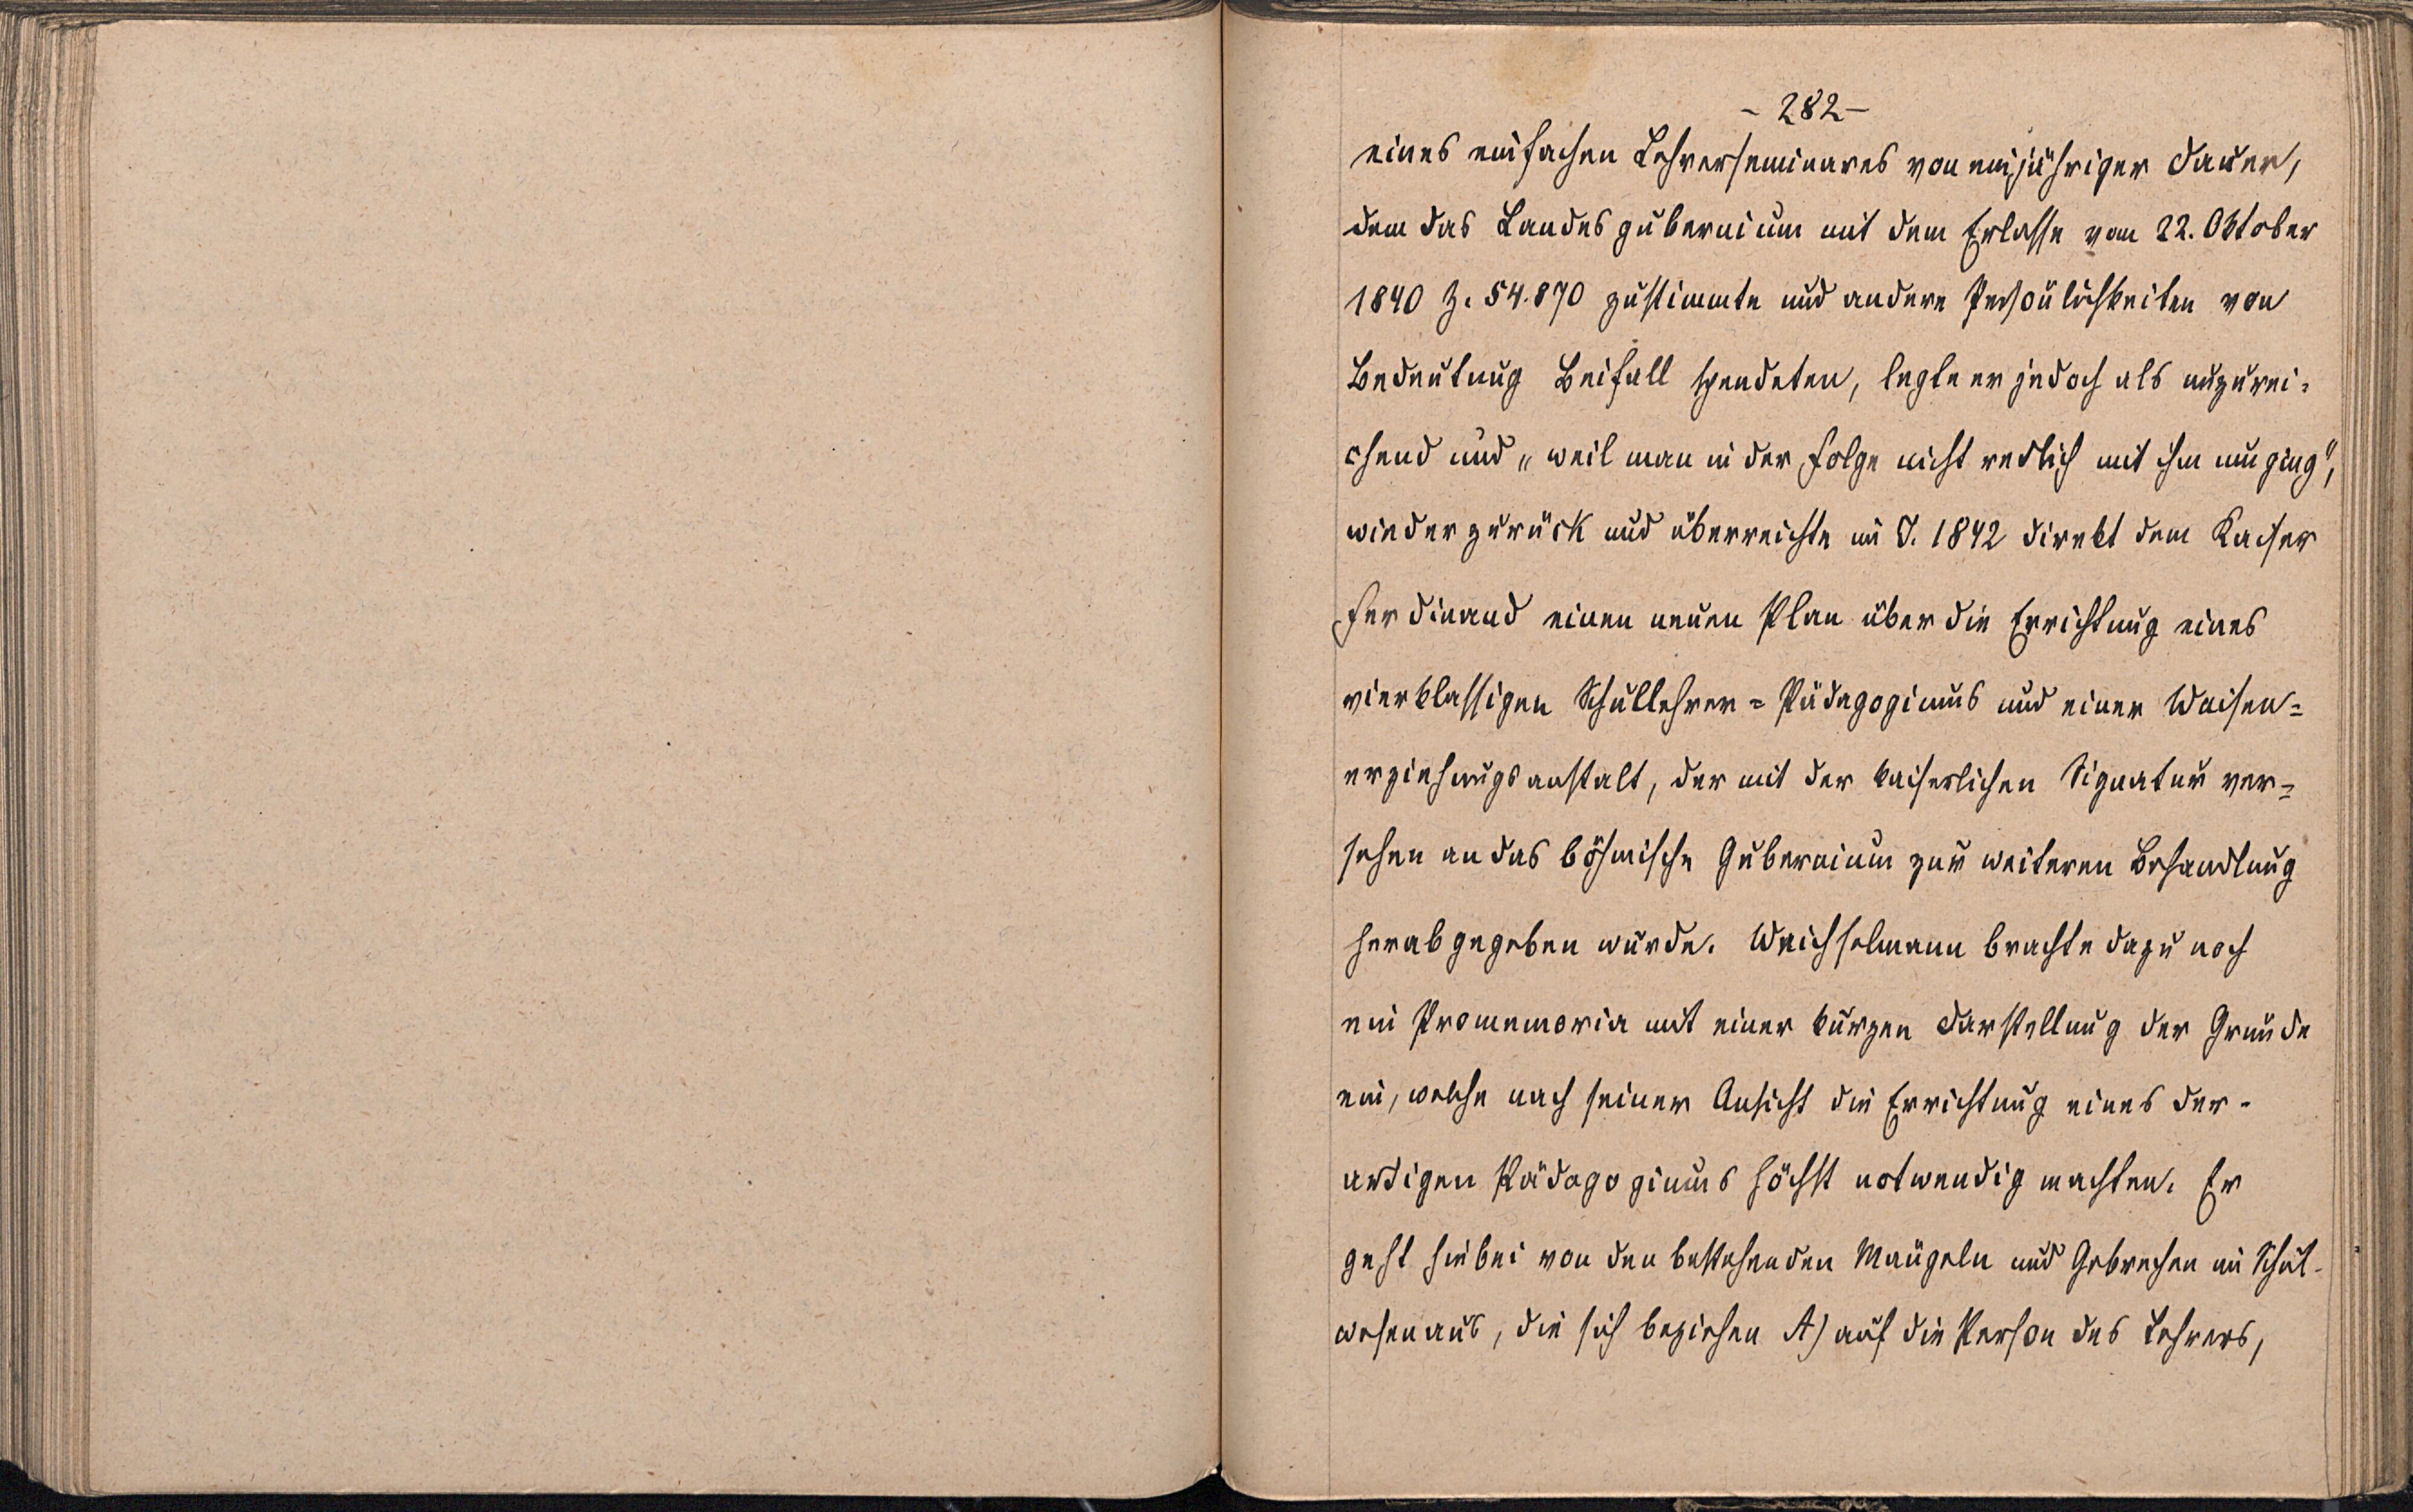 - 282 -
eines einfachen Lehrerseminares von einjähriger Dauer,
dem das Landesgubernium mit dem Erlasse vom 22. Oktober
1840 Z. 54.870 zustimmte und andere Persönlichkeiten von
Bedeutung Beifall spendeten, legte er jedoch als unzurei-
chend und „weil man in der Folge nicht redlich mit ihm umging",
wieder zurück und überreichte im J. 1842 direkt dem Kaiser
Ferdinand einen neuen Plan über die Errichtung eines
vierklassigen Schullehrer=Pädagogiums und einer Waisen=
erziehungsanstalt, der mit der kaiserlichen Signatur ver=
sehen an das böhmische Gubernium zur weiteren Behandlung
herabgegeben wurde. Weichselmann brachte dazu noch
ein Promemoria mit einer kurzen Darstellung der Gründe
ein, welche nach seiner Ansicht die Errichtung eines der-
artigen Pädagogiums höchst notwendig machten. Er
geht hiebei von den bestehenden Mängeln und Gebrechen im Schul-
wesen aus, die sich beziehen A) auf die Person des Lehrers,